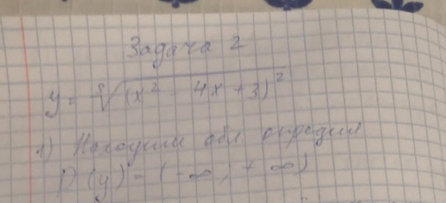 Задача 2
y = ∛(x² - 4x + 3)²
1) Находим обл. определ
D(y) = (-∞, +∞)